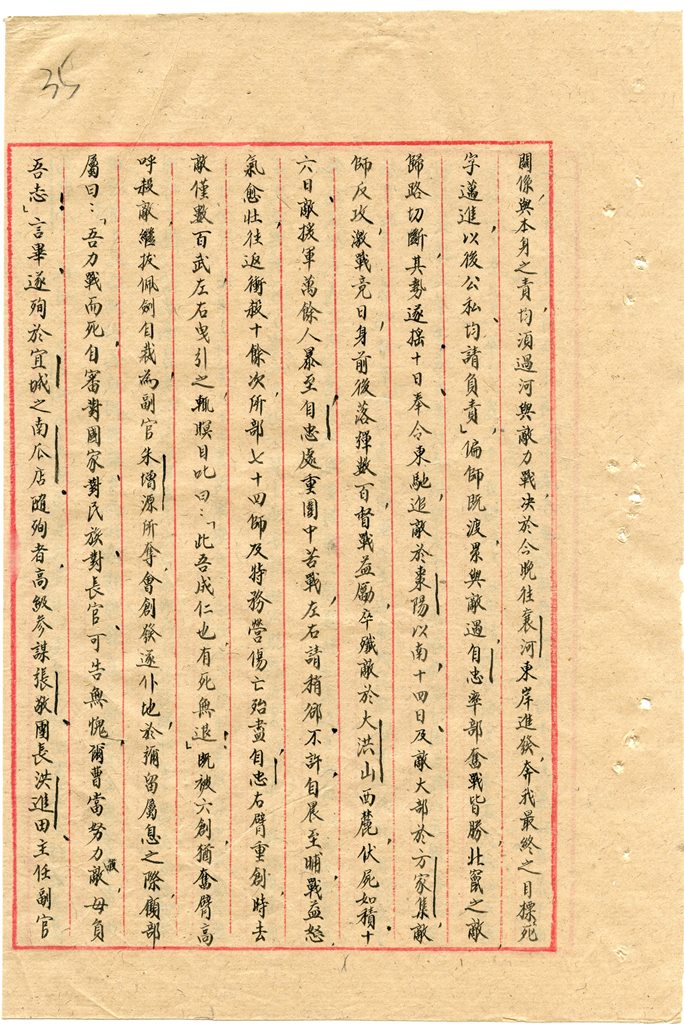 35
關係與本身之責均須過河與敵力戰決於今晚往襄河東岸進發奔我最終之目標死
字邁進以後公私均請負責」偏師既渡累與敵遇自忠率部奮戰皆勝北竄之敵
歸路切斷其勢遂搖十日奉令東馳追敵於棗陽以南十四日及敵大部於方家集敵
師反攻激戰竟日身前後落彈數百督戰益勵卒殲敵於大洪山西麓伏屍如積十
六日敵援軍萬餘人暴至自忠處重圍中苦戰左右請稍卻不許自晨至晡戰益怒
氣愈壯往返衝殺十餘次所部七十四師及特務營傷亡殆盡自忠右臂重創時去
敵僅數百武左右曳引之輒瞑目叱曰:「此吾成仁也有死無退」既被六創猶奮臂高
呼殺敵繼拔佩劍自裁為副官朱增源所奪會創發遂仆地於彌留屬息之際顧部
屬曰:「吾力戰而死自審對國家對民族對長官可告無愧爾曹當努力殺敵毋負
吾志」言畢遂殉於宜城之南瓜店隨殉者高級參謀張敬團長洪進田主任副官